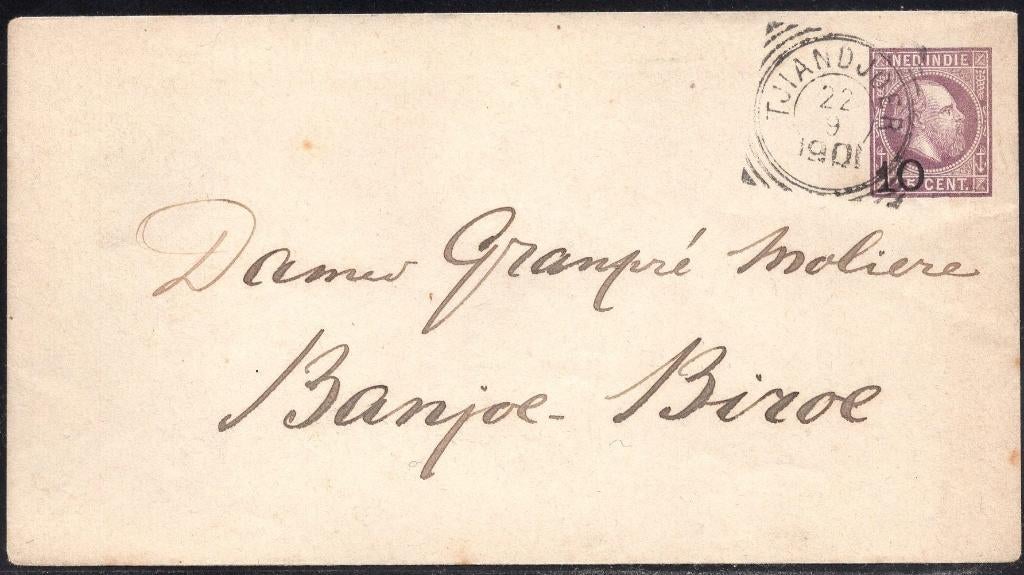 TJIANDJOER
22
9
1901
NED. INDIE
10
CENT.
Dames Granpré Moliere
Banjoe-Biroe